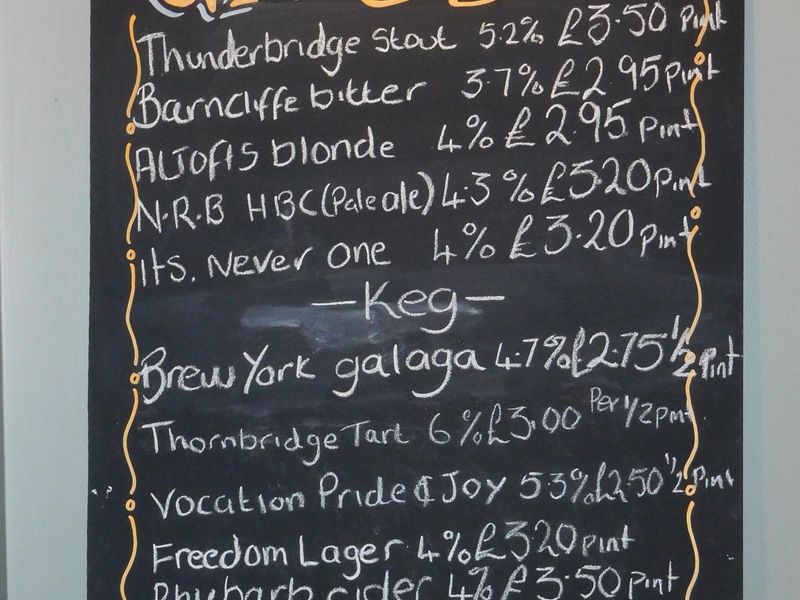 Thunderbridge Stout 5.2% £3.50 Pint
Barncliffe bitter 3.7% £2.95 Pint
ALTOFTS blonde 4% £2.95 Pint
N.R.B HBC (Pale ale) 4.3% £3.20 Pint
its. Never one 4% £3.20 Pint
—Keg—
Brew York galaga 4.7% £2.75 1/2 Pint
Thornbridge Tart 6% £3.00 Per 1/2 pint
Vocation Pride & Joy 5.3% £2.50 1/2 Pint
Freedom Lager 4% £3.20 pint
Rhubarb cider 4% £3.50 Pint